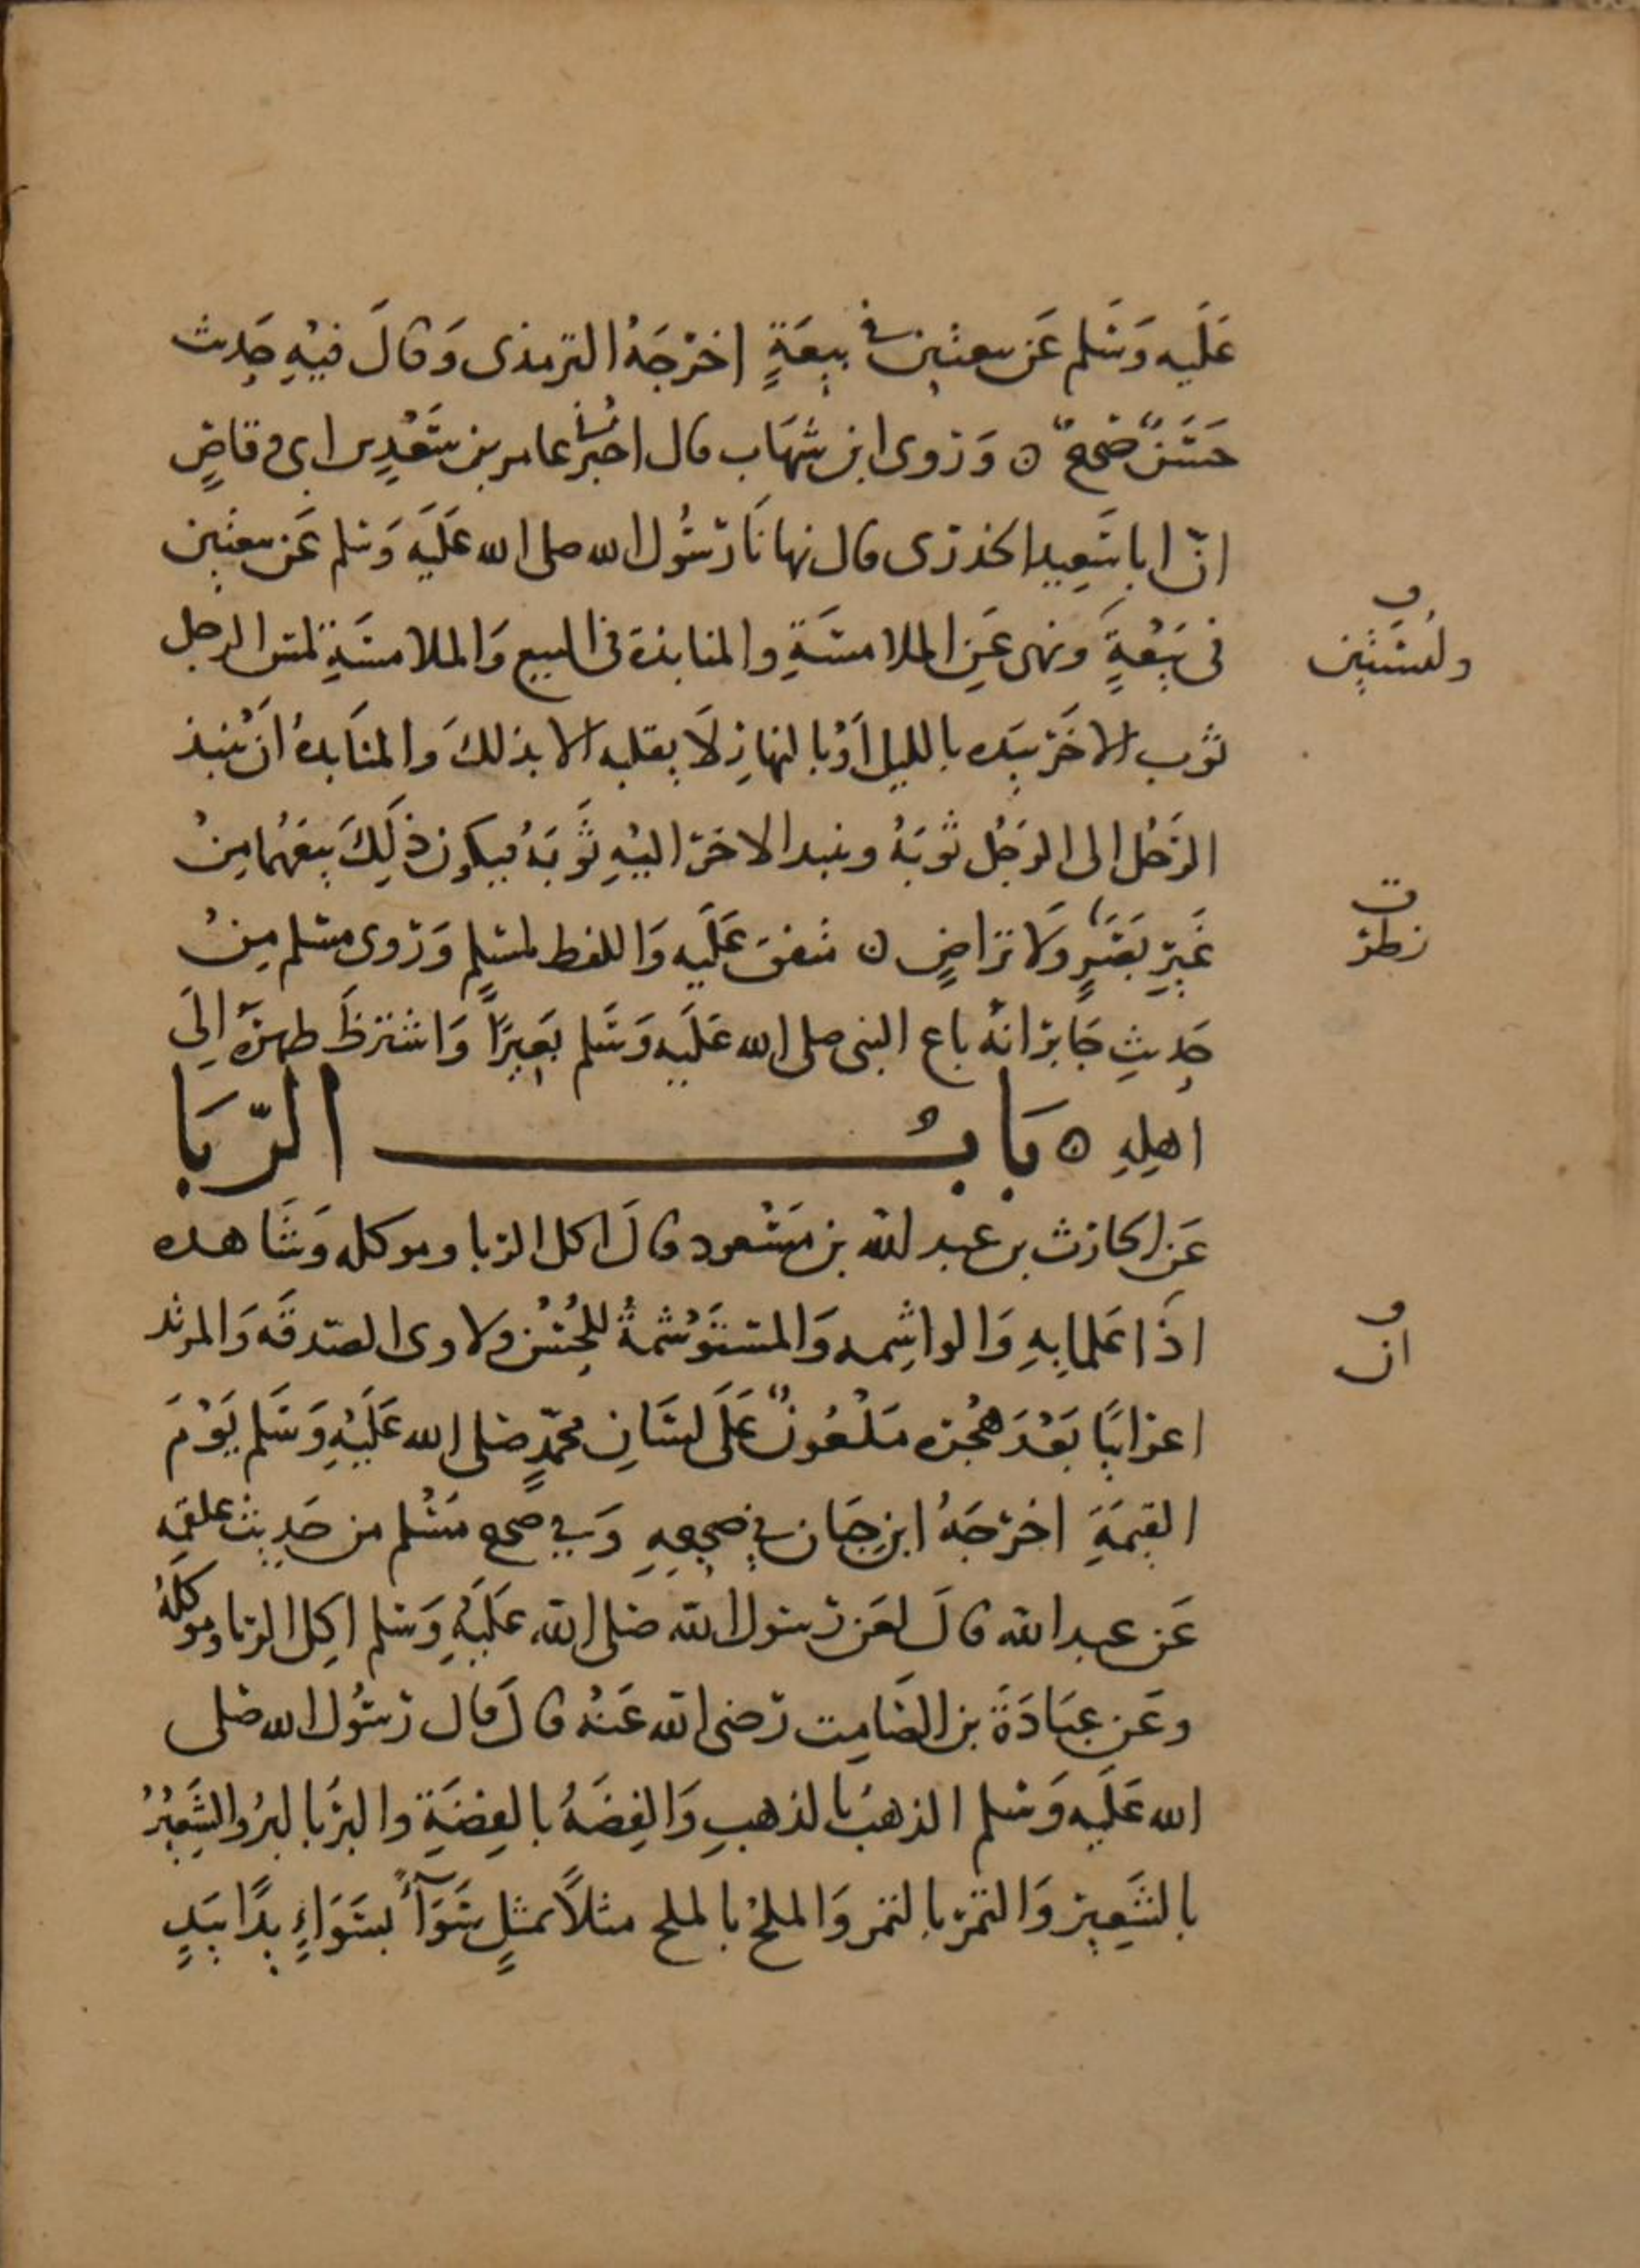 عَلَيه وَسَلم عَن بيعتين في بيعَةٍ اخرَجَهُ الترمذى وَقالَ فيْهِ حَدِيث
حَسَنٌ صحيحٌ ن وَروى ابن شهَاب قال اخبرنى عامر بن سَعْدِ بن ابى وقاصٍ
انّ ابا سَعِيد الخدرى قال نهانَا رسُول الله صلى الله عَلَيَه وَسلم عَن بيعتين
ولبستين
فى بَيْعةٍ ونهى عَنِ الملامسَةِ والمنابذة فى البيع وَالملامسَةِ لمس الرجل
ثوب الاخَر بيَده بالليل اَوْ بالنهارِ لَا يقلبه الا بذلكَ والمنَابدهُ اَنْ ينبذ
الرَجُل الى الرَجُل ثوْبَهُ وينبد الاخر اليْهِ ثَوبَهُ فيكون ذَلِكَ بيعَهُما مِنْ
غَيِر نظرٍ وَلا تراضٍ ن متفق عَلَيه وَاللفظ لمسلمٍ وَروى مسلم مِنْ
نظر
حَدِيثِ جَابر انهُ باع النبى صلى الله عَلَيه وَسَلم بَعيرًا وَاشترطَ ظهرَهُ اِلَى
اهلِهِ ن بَابُ الرّبَا
عَن الحارث بن عبد الله بن مَسْعود قالَ اكل الربا وموكله وَشَاهده
اذَا عَلما بِهِ وَالواشِمه وَالمستَوْشمةُ للحُسْن ولاوى الصَدقَه وَالمرتد
ان
اعرَابيًا بَعْدَ هجْرته مَلْعُونٌ عَلَى لسَانِ محمّدٍ صلى الله عَلَيْهِ وَسَلم يَوْمَ
القيمَةِ اخرَجَهُ ابن حِبَان في صحيحِهِ وَفي صحيح مسْلم من حَدِيث علقمه
عَن عبد الله قالَ لعَن رسول الله صَلى الله عَلَيْهِ وَسلم اكِل الربا وموكلهُ
وعَن عبَادَةَ بن الصَامِت رضى الله عَنْهُ قالَ قال رسُول الله صَلى
الله عَلَيه وَسلم الذهبُ بالذهبِ وَالفِضَهُ بالفِضَةِ والبرُّ بالبرُ والشَعِيْرُ
بالشَعِيرِ وَالتمرُ بالتمر وَالملحُ بالملح مثلاً بمثلٍ سَوَآءً بسَوَاءٍ يدًا بيَدٍ